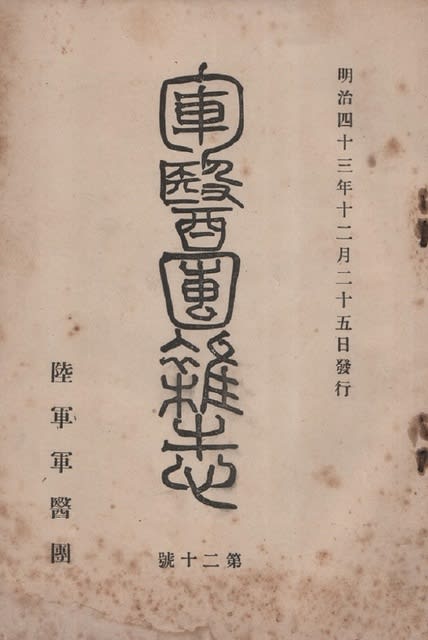 明治四十三年十二月二十五日發行
軍醫團雜志
陸軍軍醫團
第二十號